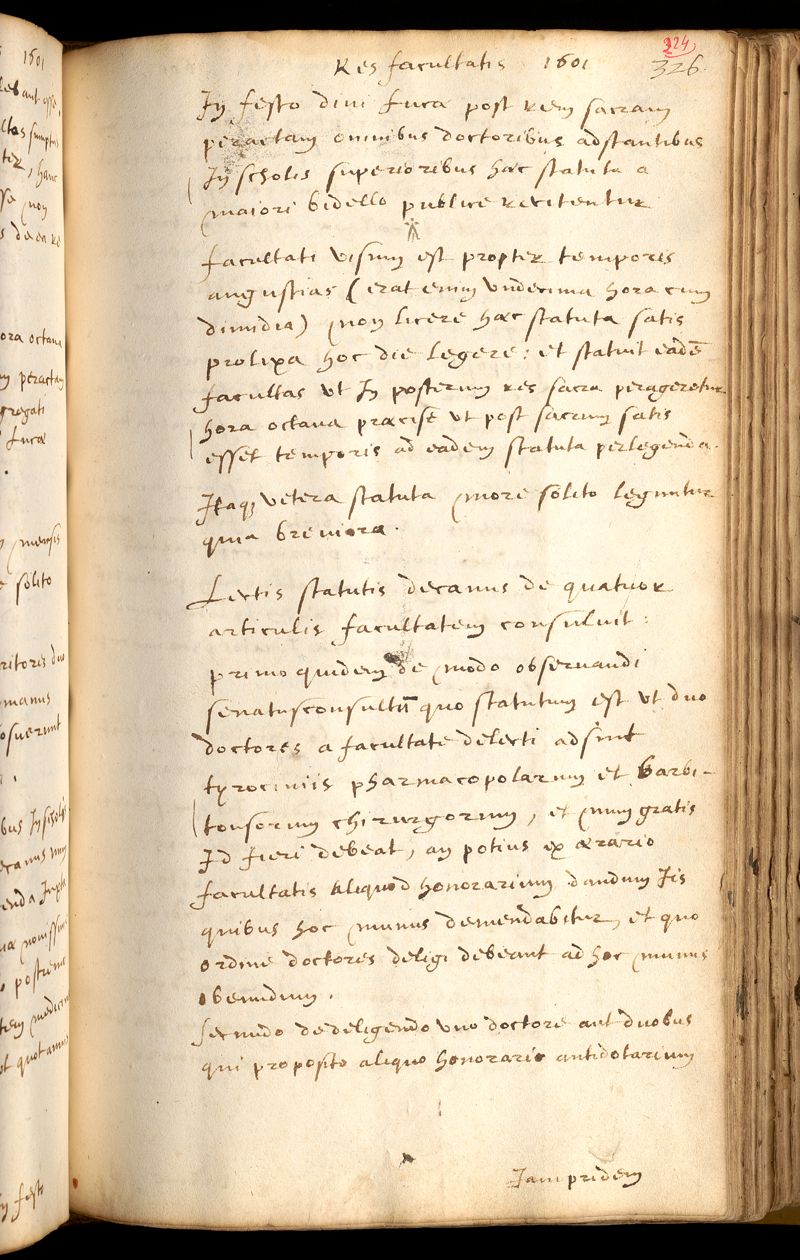 1601
Res facultatis 1601
324
326.
In festo divi Lucæ post rem sacram
peractam omnibus doctoribus adstantibus
In scholis superioribus hæc statuta a
maiori bidello publice recitentur
facultati visum est propter temporis
angustias (erat enim vndecima hora cum
dimidia) non licere hæc statuta satis
prolixa hoc die legere: et statuit eadē
facultas vt In posterum res sacra perageretur
hora octava præcise vt post sacrum satis
esset temporis ad eadem statuta perlegenda.
Itaq; vetera statuta more solito leguntur
quia breviora.
Lectis statutis decanus de quatuor
articulis facultatem consuluit:
primo quidem de modo observandi
senatusconsultū quo statutum est vt duo
doctores a facultate delecti adsint
tyrociniis pharmacopolarum et barbi-
tonsorum chirurgorum, et num gratis
Id fieri debeat, an potius ex ærario
facultatis aliquod honorarium dandum Iis
quibus hoc munus demendabitur, et quo
ordine doctores deligi debeant ad hoc munus
obeundum.
Secundo de deligendo vno doctore aut duobus
qui proposito aliquo honorario antidotarium
Iampridem